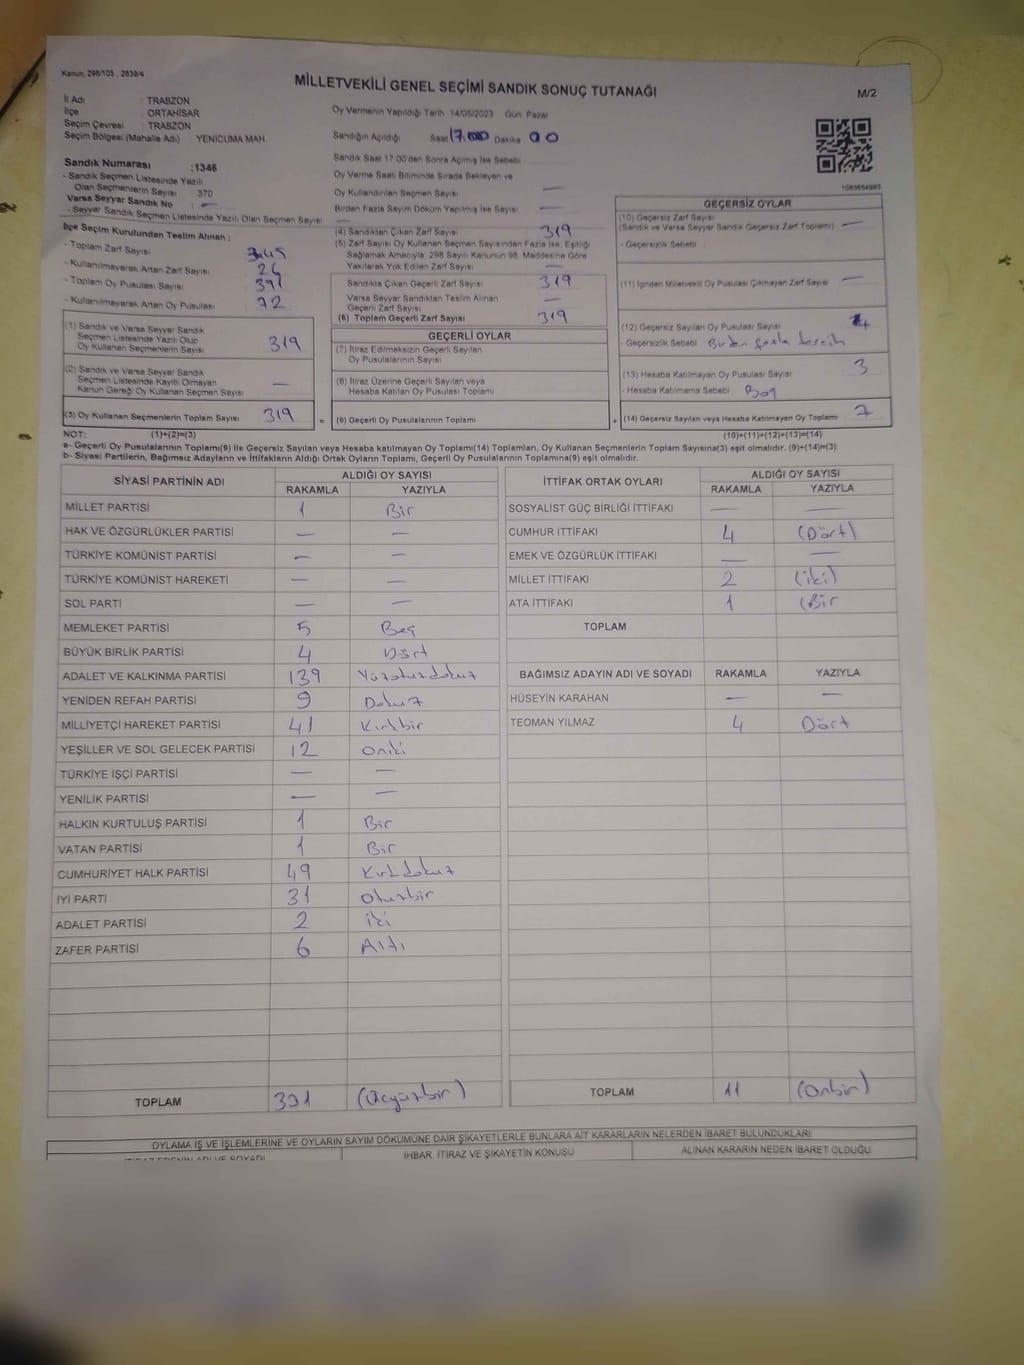 Kanun, 298/105 , 2839/4
MİLLETVEKİLİ GENEL SEÇİMİ SANDIK SONUÇ TUTANAĞI
M/2
İl Adı : TRABZON
İlçe : ORTAHİSAR
Seçim Çevresi : TRABZON
Seçim Bölgesi (Mahalle Adı) YENİCUMA MAH.
Oy Vermenin Yapıldığı Tarih 14/05/2023 Gün Pazar
Sandığın Açıldığı Saat 17.00 Dakika 00
Sandık Saat 17:00'den Sonra Açılmış İse Sebebi
Oy Verme Saati Bitiminde Sırada Bekleyen ve
Oy Kullandırılan Seçmen Sayısı —
Birden Fazla Sayım Döküm Yapılmış İse Sayısı —
Sandık Numarası : 1346
- Sandık Seçmen Listesinde Yazılı
Olan Seçmenlerin Sayısı 370
Varsa Seyyar Sandık No : —
- Seyyar Sandık Seçmen Listesinde Yazılı Olan Seçmen Sayısı : —
İlçe Seçim Kurulundan Teslim Alınan :
- Toplam Zarf Sayısı
- Kullanılmayarak Artan Zarf Sayısı
- Toplam Oy Pusulası Sayısı 391
- Kullanılmayarak Artan Oy Pusulası 72
(1) Sandık ve Varsa Seyyar Sandık
Seçmen Listesinde Yazılı Olup
Oy Kullanan Seçmenlerin Sayısı 319
(2) Sandık ve Varsa Seyyar Sandık
Seçmen Listesinde Kayıtlı Olmayan
Kanun Gereği Oy Kullanan Seçmen Sayısı —
(3) Oy Kullanan Seçmenlerin Toplam Sayısı 319
(4) Sandıktan Çıkan Zarf Sayısı 319
(5) Zarf Sayısı Oy Kullanan Seçmen Sayısından Fazla İse, Eşitliği
Sağlamak Amacıyla, 298 Sayılı Kanunun 98. Maddesine Göre
Yakılarak Yok Edilen Zarf Sayısı —
Sandıkta Çıkan Geçerli Zarf Sayısı 319
Varsa Seyyar Sandıktan Teslim Alınan
Geçerli Zarf Sayısı —
(6) Toplam Geçerli Zarf Sayısı 319
GEÇERLİ OYLAR
(7) İtiraz Edilmeksizin Geçerli Sayılan
Oy Pusulalarının Sayısı
(8) İtiraz Üzerine Geçerli Sayılan veya
Hesaba Katılan Oy Pusulası Toplamı
= (9) Geçerli Oy Pusulalarının Toplamı
GEÇERSİZ OYLAR
(10) Geçersiz Zarf Sayısı
(Sandık ve Varsa Seyyar Sandık Geçersiz Zarf Toplamı) —
- Geçersizlik Sebebi
(11) İçinden Milletvekili Oy Pusulası Çıkmayan Zarf Sayısı —
(12) Geçersiz Sayılan Oy Pusulası Sayısı 4
- Geçersizlik Sebebi Birden fazla tercih
(13) Hesaba Katılmayan Oy Pusulası Sayısı 3
- Hesaba Katılmama Sebebi Boş
+ (14) Geçersiz Sayılan veya Hesaba Katılmayan Oy Toplamı 7
NOT: (1)+(2)=(3)
(10)+(11)+(12)+(13)=(14)
a- Geçerli Oy Pusulalarının Toplamı(9) ile Geçersiz Sayılan veya Hesaba katılmayan Oy Toplamı(14) Toplamları, Oy Kullanan Seçmenlerin Toplam Sayısına(3) eşit olmalıdır. (9)+(14)=(3)
b- Siyasi Partilerin, Bağımsız Adayların ve İttifakların Aldığı Ortak Oyların Toplamı, Geçerli Oy Pusulalarının Toplamına(9) eşit olmalıdır.
SİYASİ PARTİNİN ADI ALDIĞI OY SAYISI
RAKAMLA YAZIYLA
MİLLET PARTİSİ 1 Bir
HAK VE ÖZGÜRLÜKLER PARTİSİ — —
TÜRKİYE KOMÜNİST PARTİSİ — —
TÜRKİYE KOMÜNİST HAREKETİ — —
SOL PARTİ — —
MEMLEKET PARTİSİ 5 Beş
BÜYÜK BİRLİK PARTİSİ 4 Dört
ADALET VE KALKINMA PARTİSİ 139 Yüzotuzdokuz
YENİDEN REFAH PARTİSİ 9 Dokuz
MİLLİYETÇİ HAREKET PARTİSİ 41 Kırkbir
YEŞİLLER VE SOL GELECEK PARTİSİ 12 Oniki
TÜRKİYE İŞÇİ PARTİSİ — —
YENİLİK PARTİSİ — —
HALKIN KURTULUŞ PARTİSİ 1 Bir
VATAN PARTİSİ 1 Bir
CUMHURİYET HALK PARTİSİ 49 Kırkdokuz
İYİ PARTİ 31 Otuzbir
ADALET PARTİSİ 2 iki
ZAFER PARTİSİ 6 Altı
TOPLAM 301 (Üçyüzbir)
İTTİFAK ORTAK OYLARI ALDIĞI OY SAYISI
RAKAMLA YAZIYLA
SOSYALİST GÜÇ BİRLİĞİ İTTİFAKI — —
CUMHUR İTTİFAKI 4 (Dört)
EMEK VE ÖZGÜRLÜK İTTİFAKI — —
MİLLET İTTİFAKI 2 (iki)
ATA İTTİFAKI 1 (Bir
TOPLAM
BAĞIMSIZ ADAYIN ADI VE SOYADI RAKAMLA YAZIYLA
HÜSEYİN KARAHAN — —
TEOMAN YILMAZ 4 Dört
TOPLAM 11 (Onbir)
OYLAMA İŞ VE İŞLEMLERİNE VE OYLARIN SAYIM DÖKÜMÜNE DAİR ŞİKAYETLERLE BUNLARA AİT KARARLARIN NELERDEN İBARET BULUNDUKLARI
İTİRAZ EDENİN ADI VE SOYADI İHBAR, İTİRAZ VE ŞİKAYETİN KONUSU ALINAN KARARIN NEDEN İBARET OLDUĞU